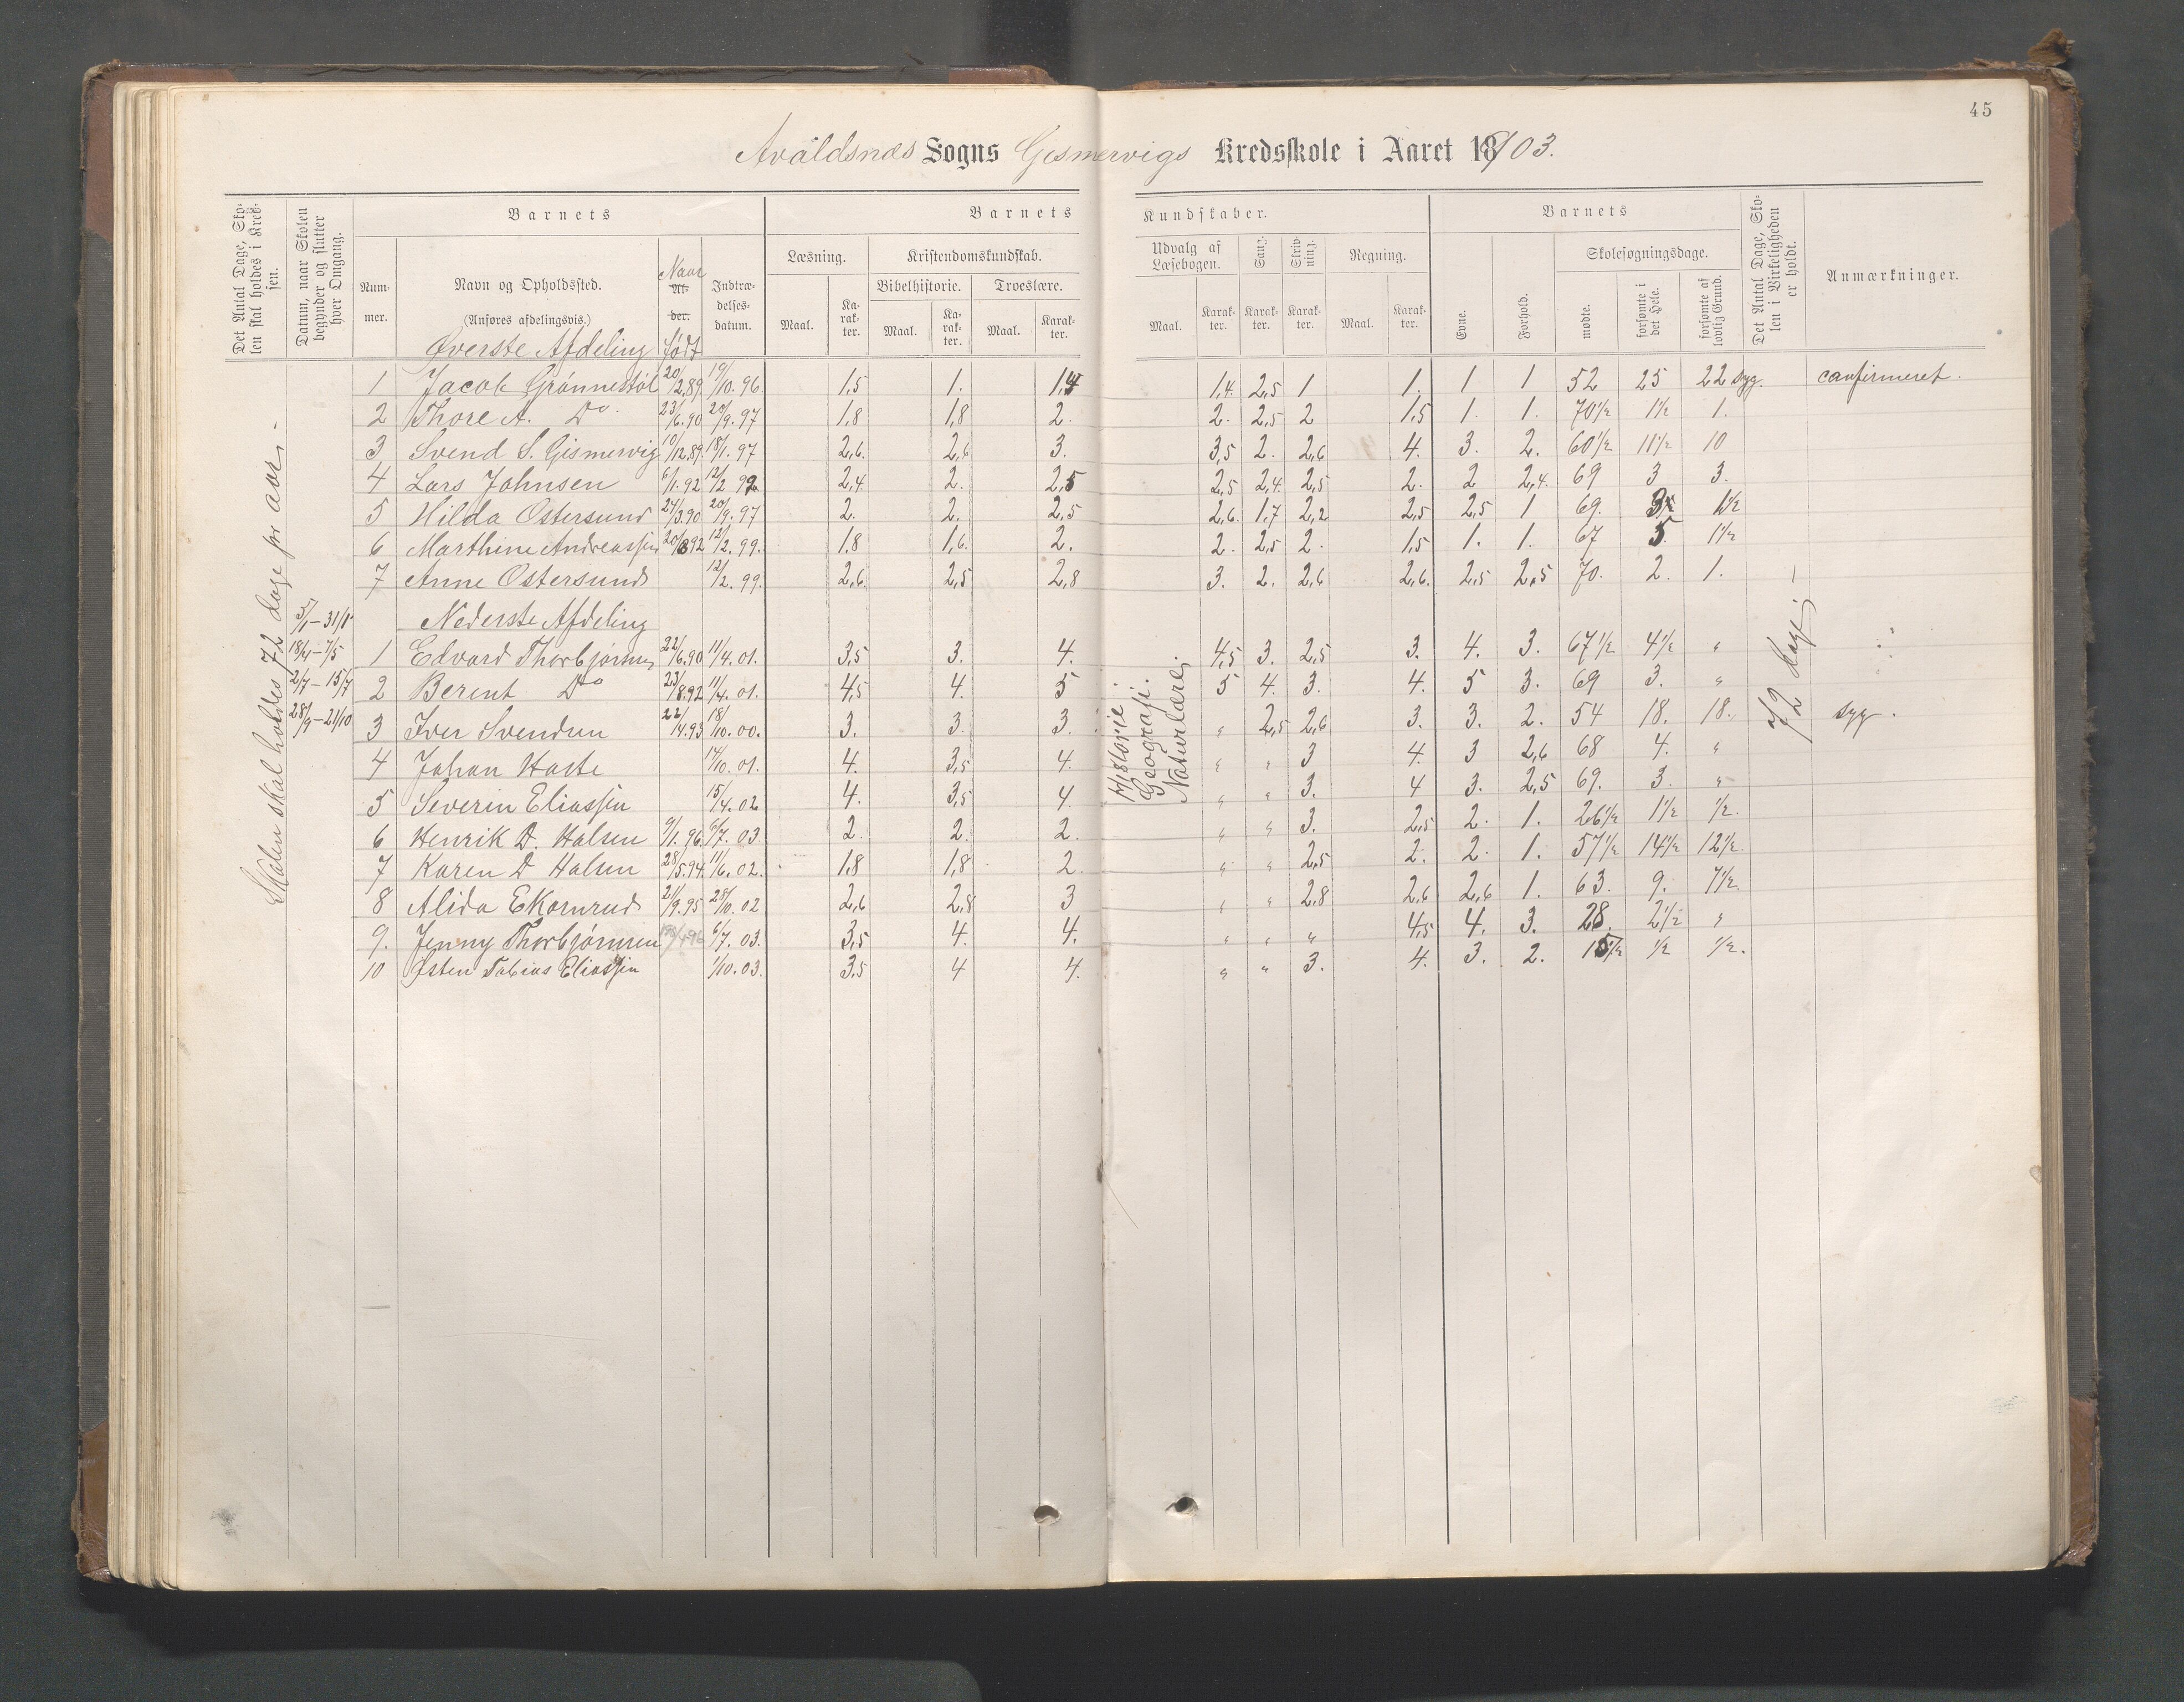 45
Avaldsnæs Sogns Gismervigs Kredsskole i Aaret 18/03.
Det Antal Dage, Skolen skal holdes i Kredsen.
Datum, naar Skolen begynder og slutter hver Omgang.
Barnets
Barnets Kundskaber.
Barnets
Det Antal Dage, Skolen i Virkeligheden er holdt.
Anmærkninger.
Nummer.
Navn og Opholdssted.
(Anføres afdelingsvis.)
Alder. Naar født
Indtrædelsesdatum.
Læsning.
Kristendomskundskab.
Bibelhistorie.
Troeslære.
Udvalg af Læsebogen.
Sang.
Skrivning.
Regning.
Evne.
Forhold.
Skolesøgningsdage.
mødte.
forsømte i det Hele.
forsømte af lovlig Grund.
Maal. Karakter. Maal. Karakter. Maal. Karakter. Maal. Karakter. Karakter. Karakter. Maal. Karakter.
Skolen skal holdes 72 dage pr aar.
Øverste Afdeling
1 Jacob Grønnestøl 20/2.89. 19/10.96. 1,5 1. 1,4 1,4. 2,5 1 1. 1 1 52 25 22 syg. confirmeret.
2 Thore A. Do. 23/6.90 20/9.97 1,8 1,8 2. 2. 2,5 2 1,5 1. 1. 70½ 1½ 1.
3 Svend S. Gismervig 10/12.89. 18/1.97 2,6. 2,6 3. 3,5 2. 2,6 4. 3. 2. 60½ 11½ 10
4 Lars Johnsen 6/1.92 12/2 99 2,4. 2. 2,5 2,5 2,4. 2,5 2. 2 2,4. 69 3 3.
5 Hilda Ostersund 24/3.90 20/9.97 2. 2. 2,5 2,6. 1,7 2,2 2,5 2,5 1 69. 3 1½
6 Marthine Andreassen 20/8 92 12/2.99. 1.8 1,6. 2. 2. 2,5 2. 1,5 1. 1. 67 5. 1½
7 Anne Ostersund 12/2.99. 2,6. 2,5 2,8 3. 2. 2,6 2,6. 2,5 2,5 70. 2. 1.
3/1-31/1
18/4-7/5
2/7-15/7
28/9-21/10
Nederste Afdeling
Historie. Geografi. Naturlære.
72 dage.
1 Edvard Thorbjørnsen 22/6.90 11/4.01. 3,5 3. 4. 4,5 3. 2,5 3. 4. 3. 67½ 4½ "
2 Berent Do 23/8.92 11/4.01. 4,5 4. 5 5 4. 3. 4. 5 3. 69 3. "
3 Iver Svendsen 22/4.93 18/10.00. 3. 3. 3. " 2,5 2,6 3. 3. 2. 54 18. 18. syg.
4 Johan Haste 14/10.01. 4. 3,5 4. " " 3 4. 3 2,6 68 4. "
5 Severin Eliassen 15/4.02 4. 3,5 4. " " 3. 4 3. 2,5 69. 3. "
6 Henrik D. Halsen 9/1.96. 6/7.03. 2. 2. 2. " " 3. 2,5 2. 1. 26½ 1½ ½.
7 Karen D Halsen 28/5.94. 11/6.02. 1,8 1,8 2. " " 2,5 2. 2. 1. 57½ 14½ 12½.
8 Alida Ekornrud 21/9.95 28/10.02 2,6 2,8 3 " " 2,8 2,6 2,6 1. 63. 9. 7½.
9. Jenny Thorbjørnsen 6/7.03. 3,5 4. 4. " " " 4,5 4. 3. 28. 2½ "
10 Østen Tobias Eliassen 1/10.03. 3,5 4 4. " " 3. 4. 3. 2. 15½ ½ ½.